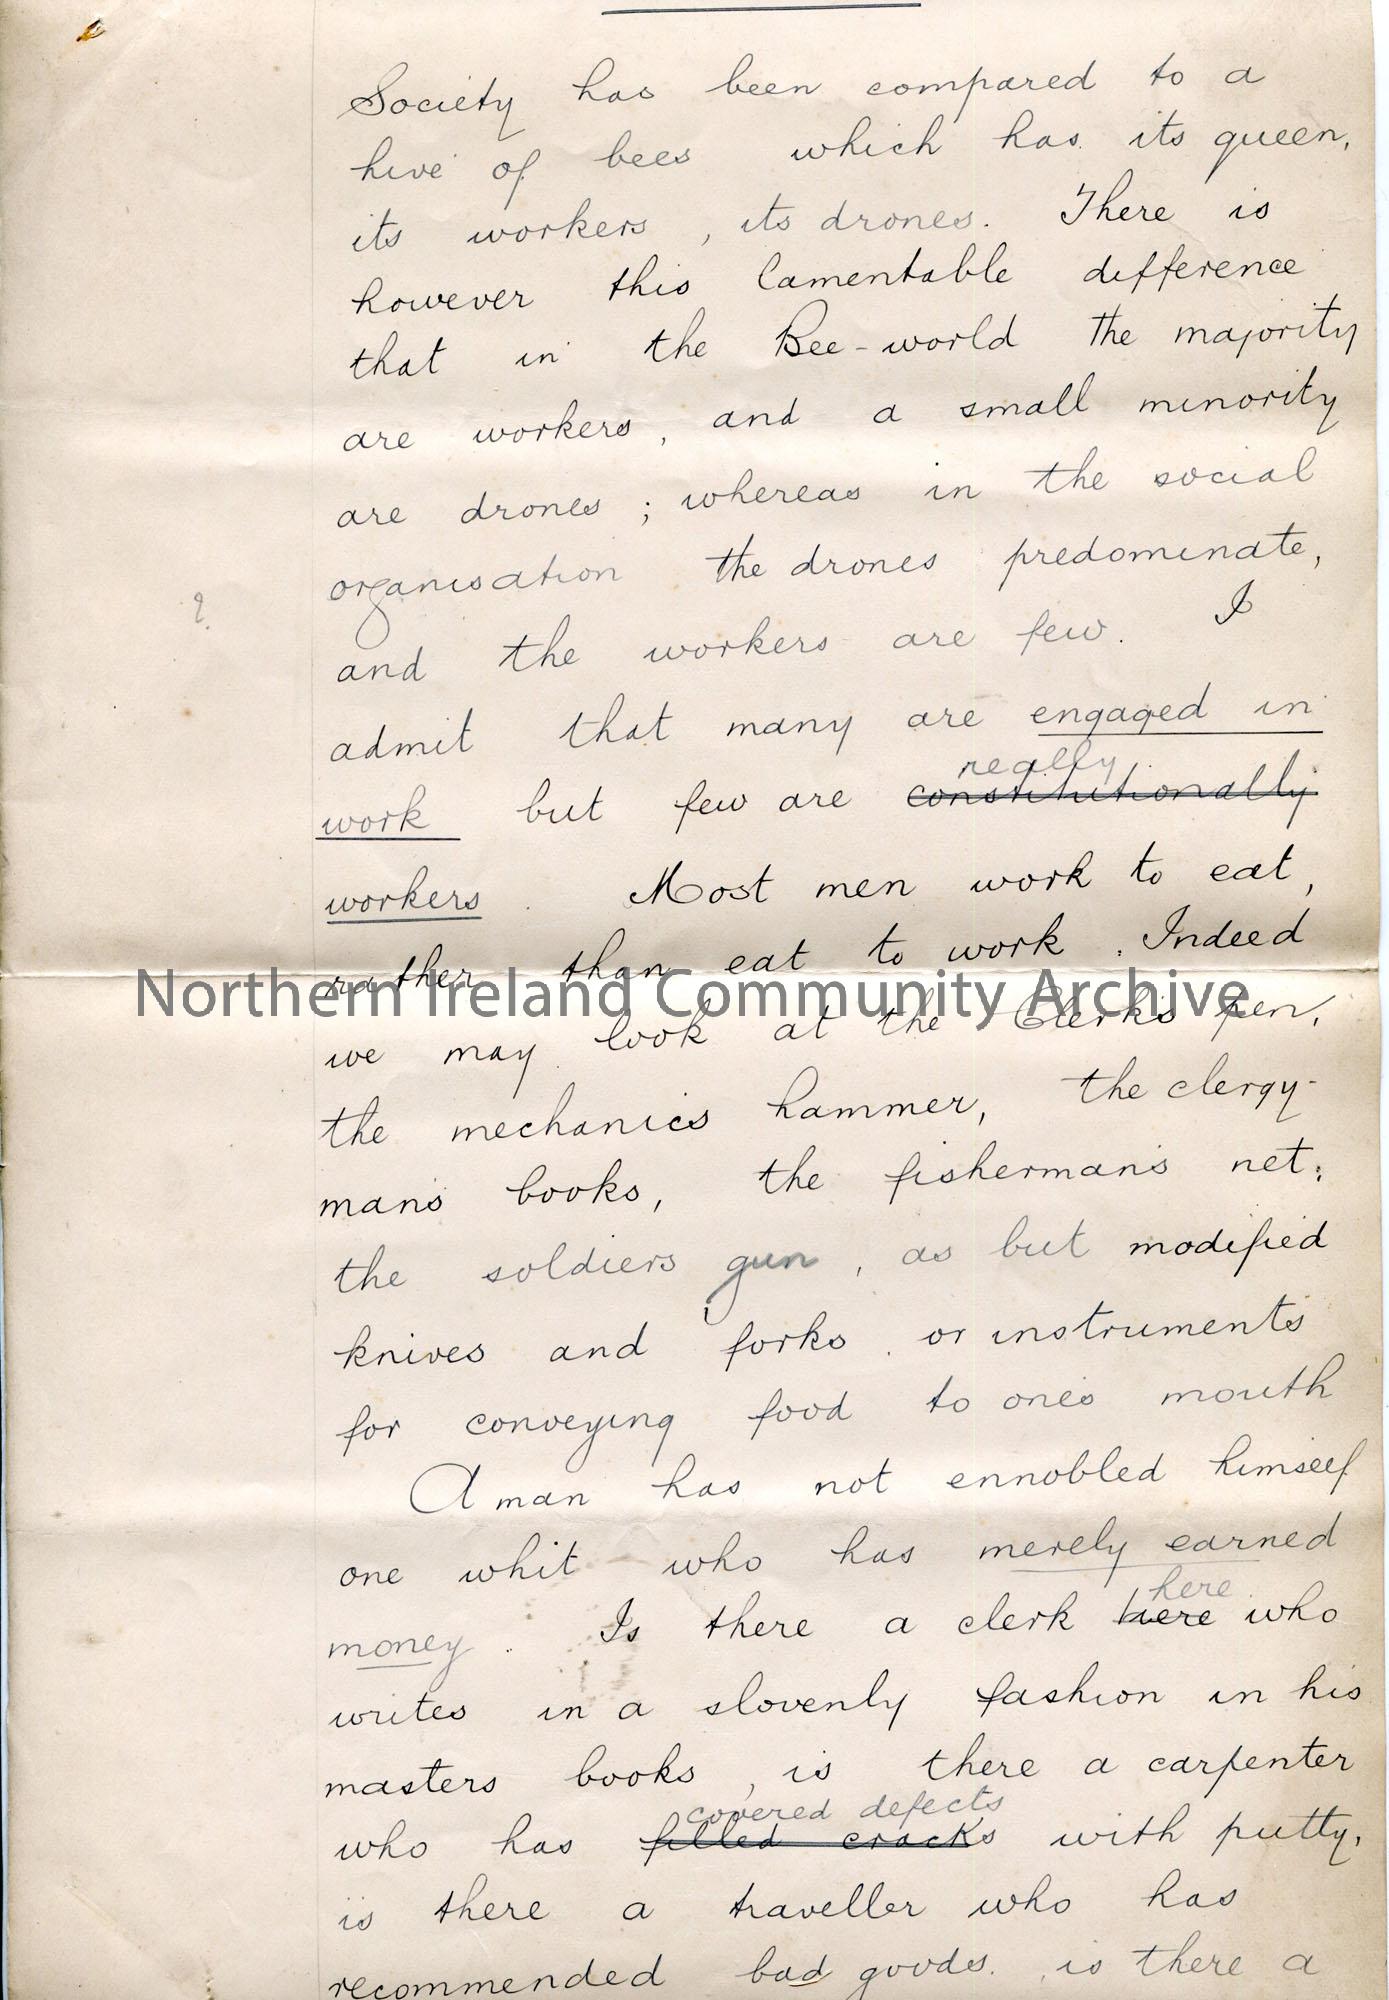 Society has been compared to a
hive of bees which has its queen,
its workers, its drones. There is
however this lamentable difference
that in the Bee-world the majority
are workers, and a small minority
are drones; whereas in the social
organisation the drones predominate,
?
and the workers are few. I
admit that many are engaged in
really
work but few are constitutionally
workers. Most men work to eat,
rather than eat to work. Indeed
Northern Ireland Community Archive
we may look at the Clerk's pen,
the mechanics hammer, the clergy-
man's books, the fisherman's net,
the soldiers gun, as but modified
knives and forks, or instruments
for conveying food to one's mouth
A man has not ennobled himself
one whit who has merely earned
here
money. Is there a clerk here who
writes in a slovenly fashion in his
masters books, is there a carpenter
covered defects
who has filled cracks with putty,
is there a traveller who has
recommended bad goods, is there a